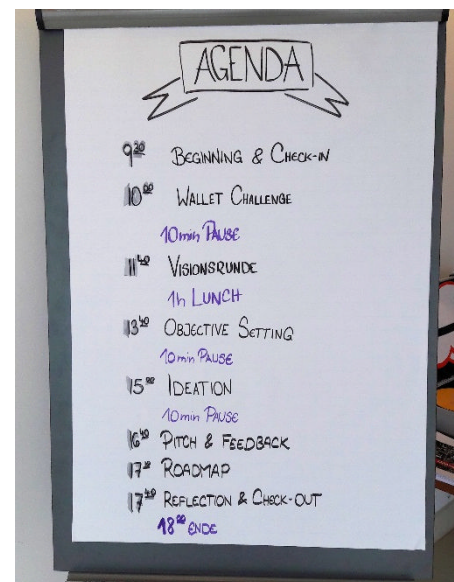 AGENDA
9:30 BEGINNING & CHECK-IN
10:00 WALLET CHALLENGE
10min PAUSE
11:40 VISIONSRUNDE
1h LUNCH
13:40 OBJECTIVE SETTING
10min PAUSE
15:00 IDEATION
10min PAUSE
16:40 PITCH & FEEDBACK
ROADMAP
REFLECTION & CHECK-OUT
18:00 ENDE